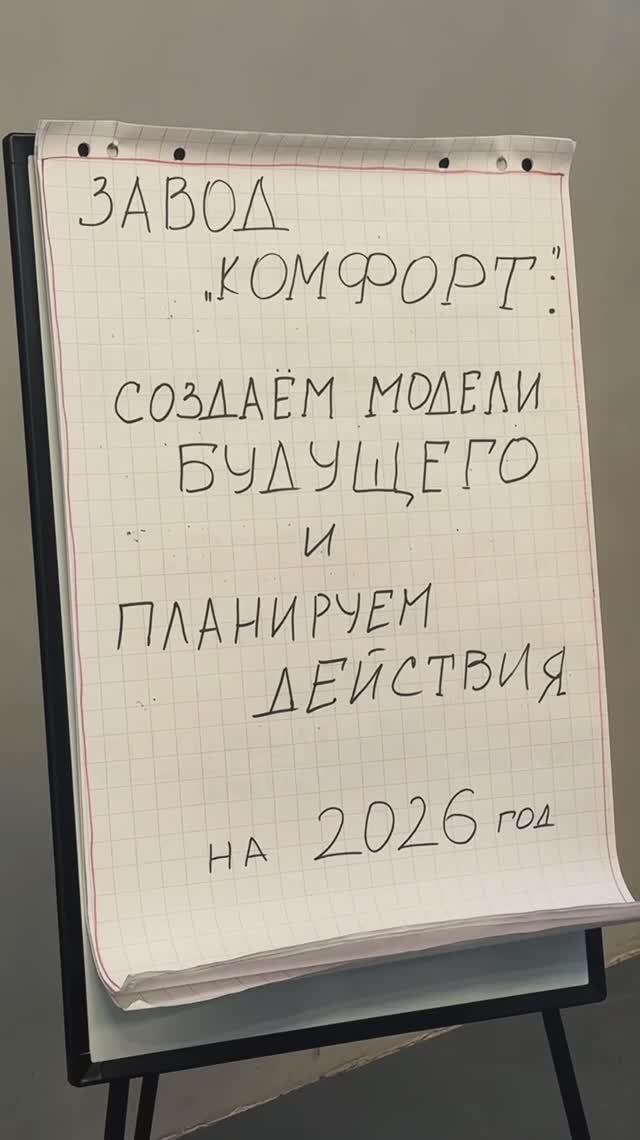 ЗАВОД
„КОМФОРТ":
СОЗДАЁМ МОДЕЛИ
БУДУЩЕГО
И
ПЛАНИРУЕМ
ДЕЙСТВИЯ
НА 2026 ГОД